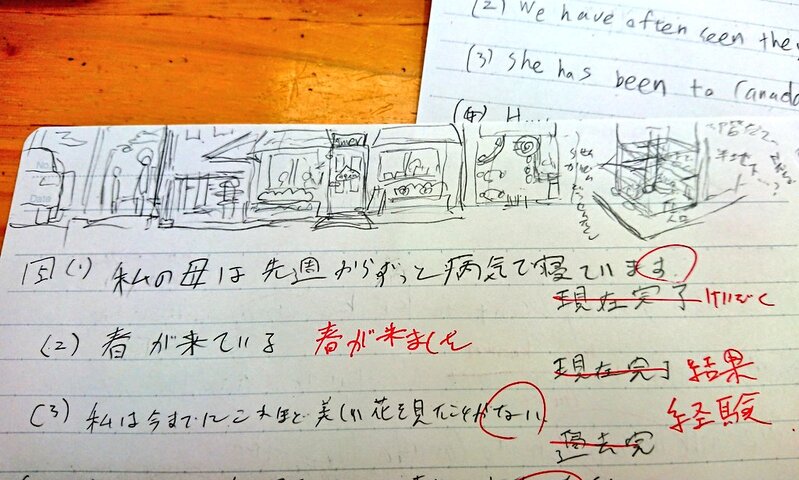 (2) We have often seen the
(3) She has been to Canada
(4) H....
No.
Date
5 (1) 私の母は先週からずっと病気で寝ています。
現在完了 けいぞく
(2) 春が来ている 春が来ました
現在完了 結果
(3) 私は今までにこれほど美しい花を見たことがない。
経験
過去完